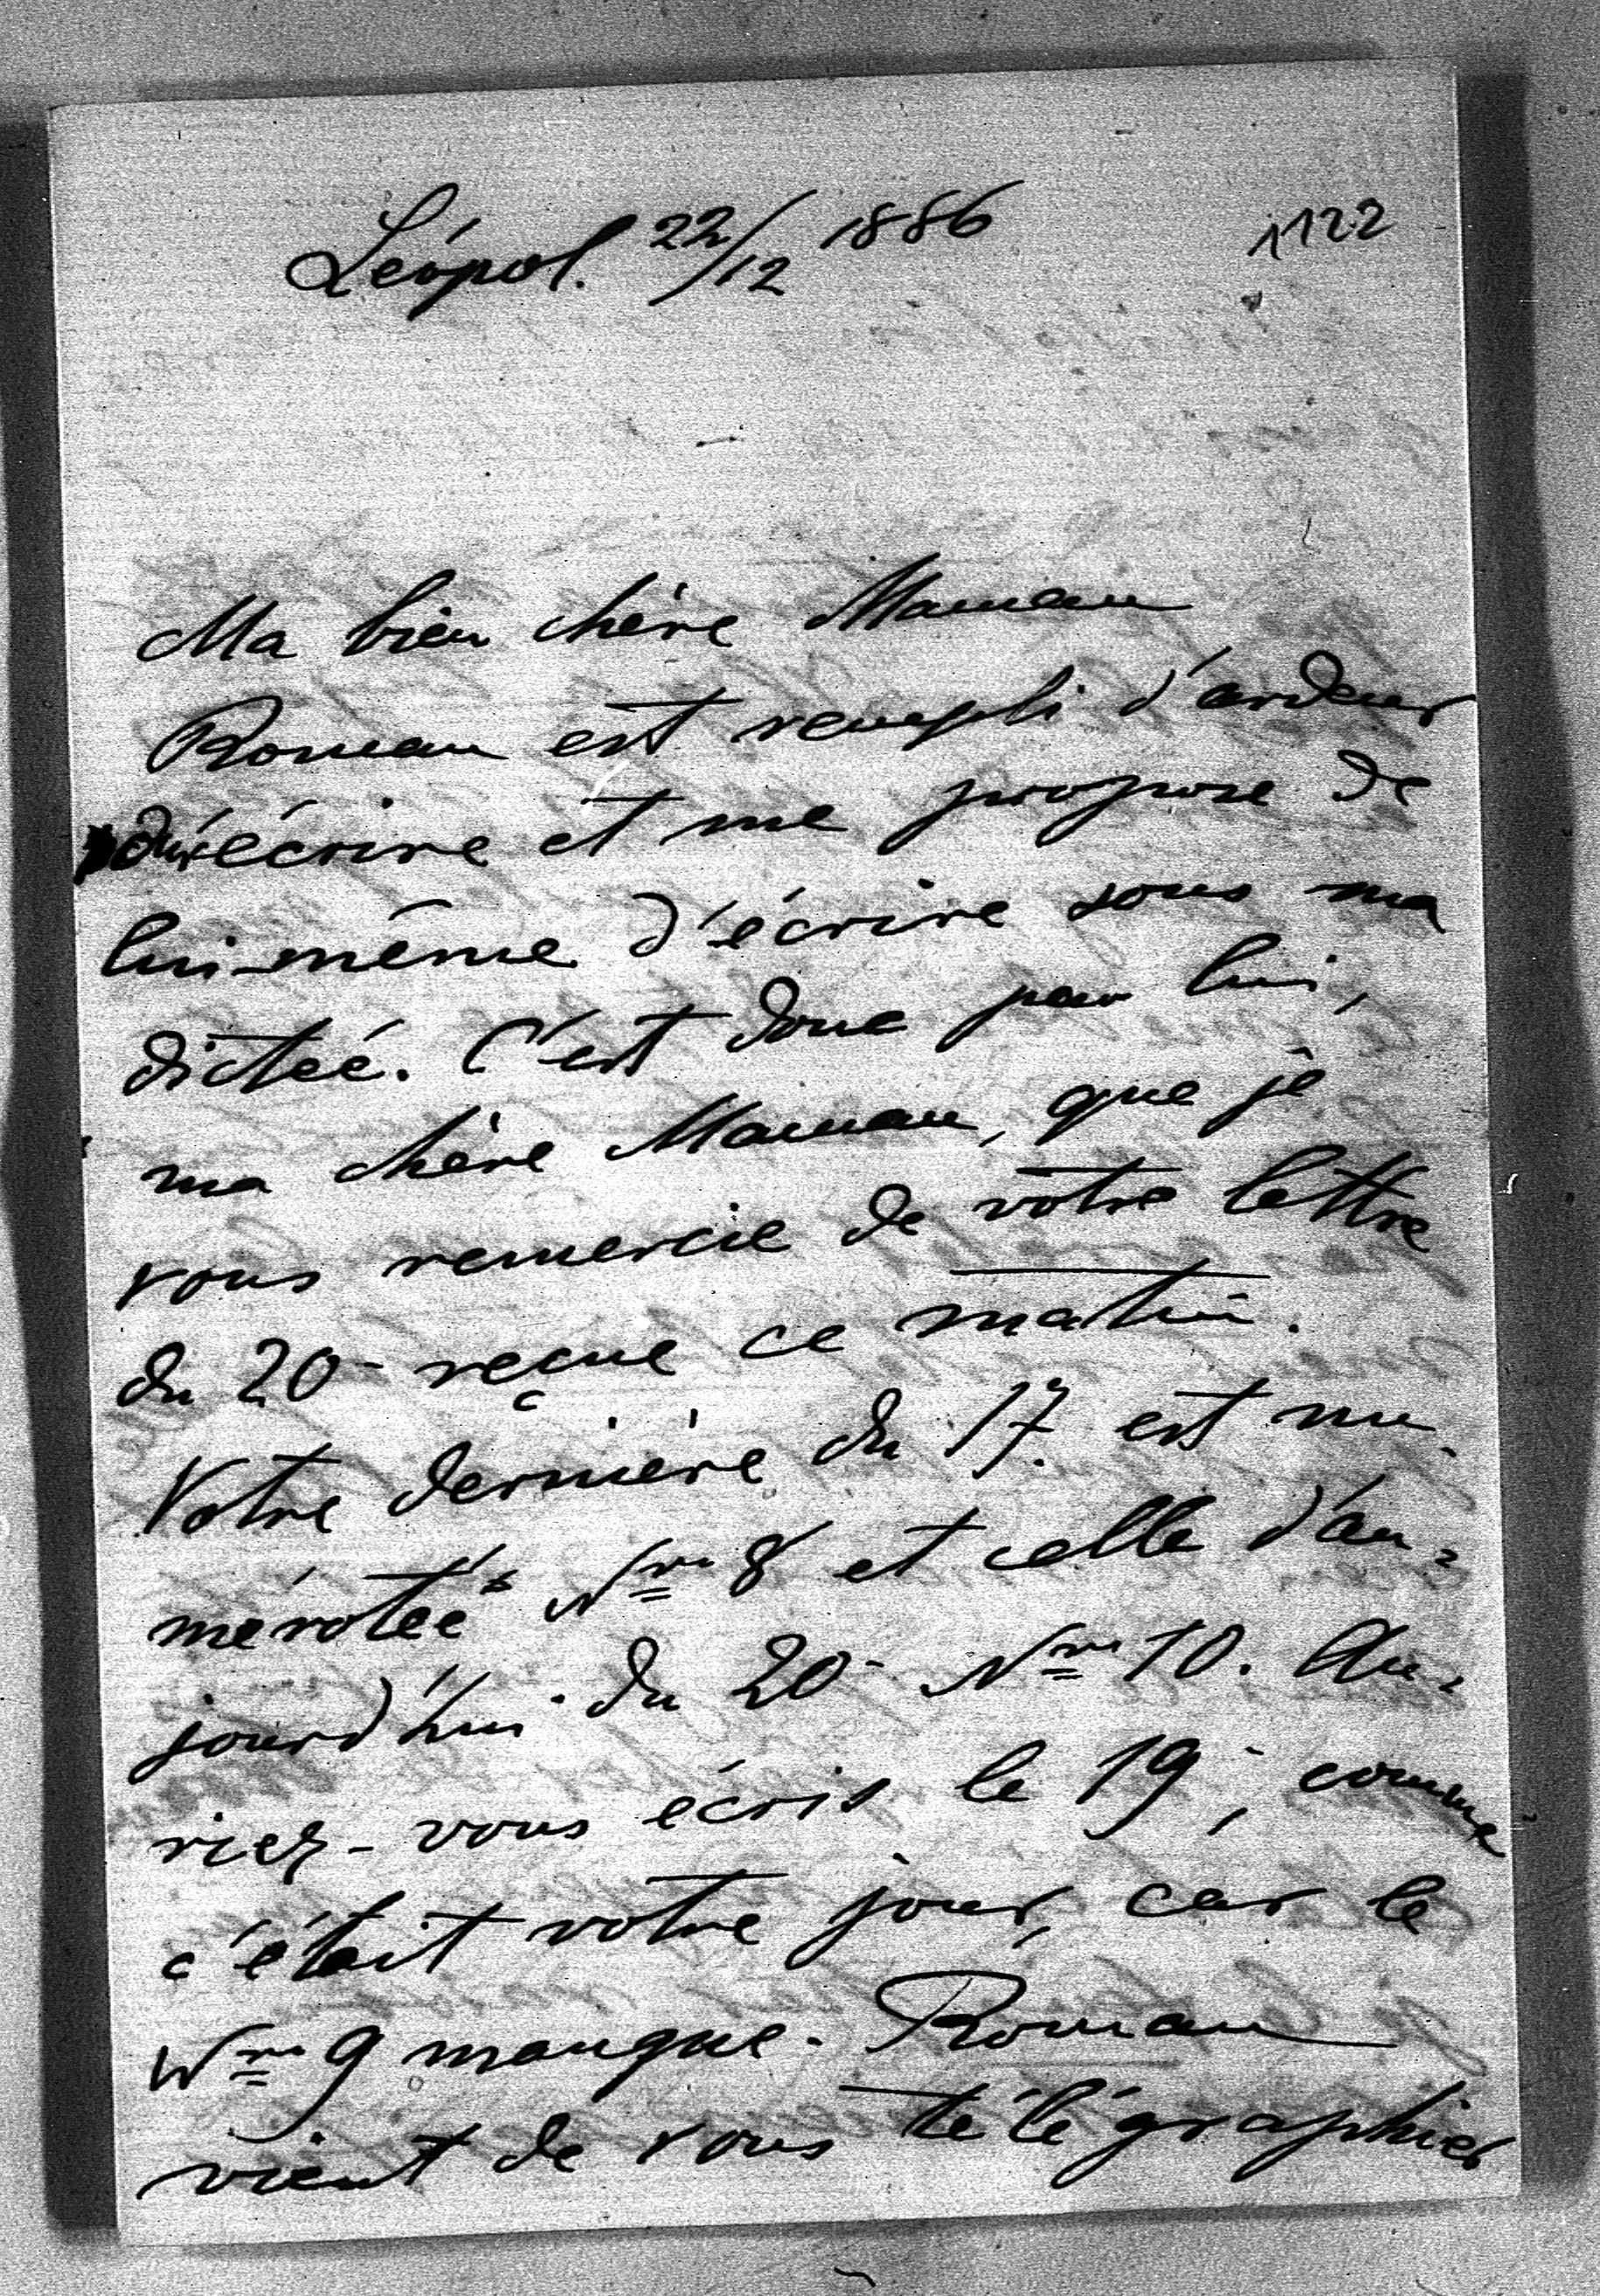 Léopol. 22/12 1886
1122
Ma bien chère Maman
Roman est rempli d'ardeur
d'écrire et me propose de
lui-même d'écrire sous ma
dictée. C'est donc par lui,
ma chère Maman, que je
vous remercie de vôtre lettre
du 20 - reçue ce matin.
Votre dernière du 17. est nu-
mérotée Nro 8 et celle d'au-
jourd'hui du 20 - Nro 10. Au-
riez-vous écris le 19, comme
c'était votre jour, car le
Nro 9 manque. Roman
vient de vous télégraphier